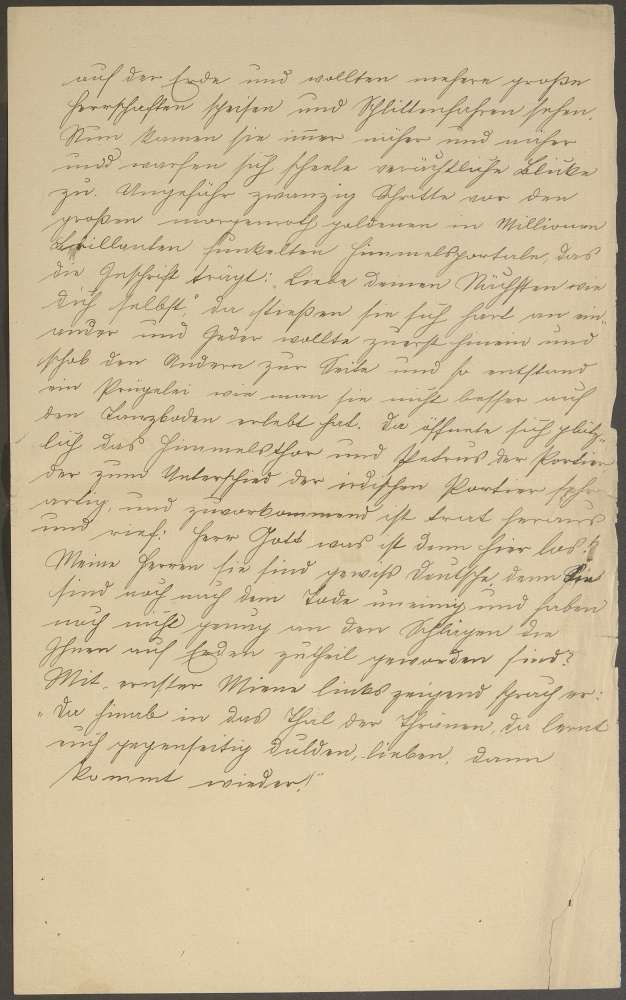 auf der Erde und wollten mehere große
Herrschaften speisen und Schlittenfahren sehen.
Nun kamen sie immer näher und näher
und warfen sich scheele verächtliche Blicke
zu. Ungefähr zwanzig Schritte vor den
großen morgenroth goldenen in Millionen
Brillanten funkelten Himmelsportale, das
die Inschrift trägt: „Liebe Deinen Nächsten wie
Dich selbst“, da stießen sie sich hart an ein-
ander und Jeder wollte zuerst hinein und
schob den Andern zur Seite und so entstand
ein Prügelei wie man sie nicht besser auf
den Tanzboden erlebt hat. Da öffnete sich plötz-
lich das Himmelsthor und Petrus der Portier
der zum Unterschied der irdischen Portier sehr
artig und zuvorkommend ist trat heraus
und rief: Herr Gott was ist denn hier los?
Meine Herren sie sind gewiss Deutsche, denn Sie
sind noch nach dem Tode uneinig und haben
noch nicht genug an den Schlägen die
Ihnen auf Erden zutheil geworden sind?
Mit ernster Miene links zeigend sprach er:
„Da hinab in das Thal der Thränen, da lernt
euch gegenseitig dulden, lieben, dann
kommt wieder!“